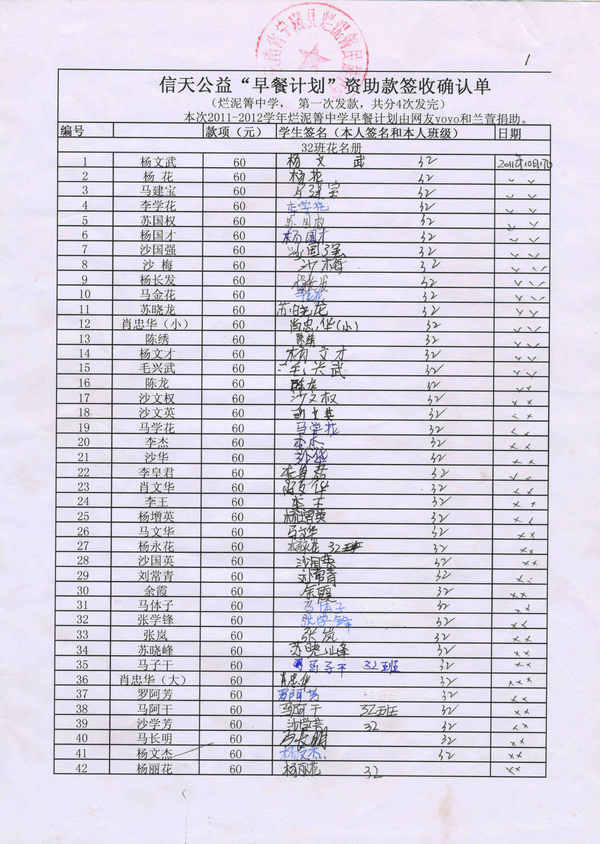 1
信天公益“早餐计划”资助款签收确认单
(烂泥箐中学, 第一次发款,共分4次发完)
本次2011-2012学年烂泥箐中学早餐计划由网友yoyo和兰萱捐助。
编号 款项(元) 学生签名(本人签名和本人班级) 日期
32班花名册
1 杨文武 60 杨文武 32
2 杨 花 60 杨花 32
3 马建宝 60 马建宝 32
4 李学花 60 李学花 32
5 苏国权 60 苏国权 32
6 杨国才 60 杨国才 32
7 沙国强 60 沙国强 32
8 沙 梅 60 沙梅 32
9 杨长发 60 32
10 马金花 60 32
11 苏晓龙 60 苏晓龙 32
12 肖忠华(小) 60 肖忠华(小) 32
13 陈绣 60 陈绣 32
14 杨文才 60 杨文才 32
15 毛兴武 60 毛兴武 32
16 陈龙 60 陈龙 32
17 沙文权 60 沙文权 32
18 沙文英 60 32
19 马学花 60 马学花 32
20 李杰 60 李杰 32
21 沙华 60 沙华 32
22 李皇君 60 李皇君 32
23 肖文华 60 肖文华 32
24 李王 60 李王 32
25 杨增英 60 杨增英 32
26 马文华 60 马文华 32
27 杨永花 60 杨永花 32班
28 沙国英 60 沙国英 32
29 刘常青 60 刘常青 32
30 余霞 60 余霞 32
31 马体子 60 马体子 32
32 张学锋 60 张学锋 32
33 张岚 60 张岚 32
34 苏晓峰 60 苏晓峰 32
35 马子干 60 马子干 32班
36 肖忠华(大) 60 肖忠华 32
37 罗阿芳 60 罗阿芳 32
38 马阿干 60 马阿干 32班
39 沙学芳 60 沙学芳 32
40 马长明 60 马长明 32
41 杨文杰 60 杨文杰 32
42 杨丽花 60 杨丽花 32